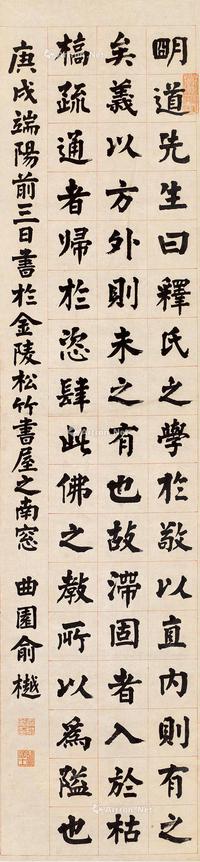 明道先生曰釋氏之學於敬以直內則有之
矣義以方外則未之有也故滯固者入於枯
槁疏通者歸於恣肆此佛之教所以為隘也
庚戌端陽前三日書於金陵松竹書屋之南窓 曲園俞樾